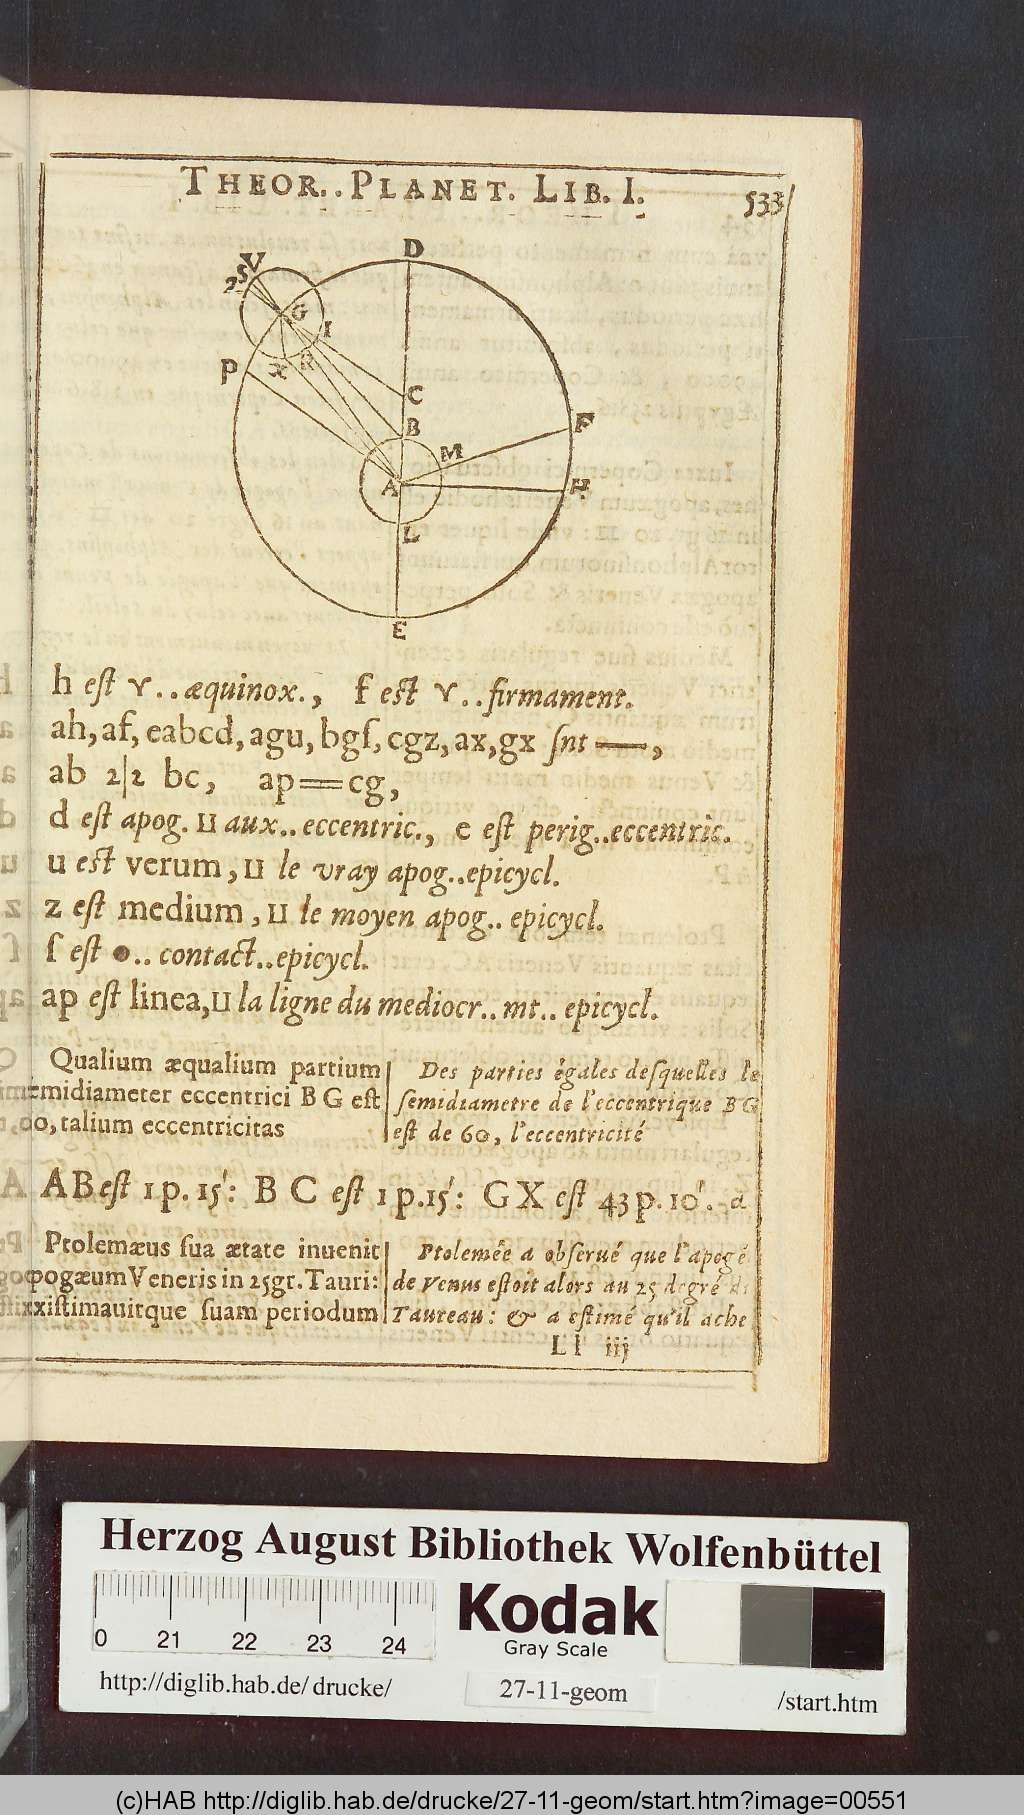 THEOR.. PLANET. LIB. I.
533
D
V
S
2
G
I
P
X
R
C
B
F
M
A
H
L
E
h eſt ♈.. æquinox., f eſt ♈.. firmament.
ah, af, eabcd, agu, bgſ, cgz, ax, gx ſnt —,
ab 2|2 bc, ap==cg,
d eſt apog. ⊔ aux.. eccentric., e eſt perig.. eccentric.
u eſt verum, ⊔ le vray apog.. epicycl.
z eſt medium, ⊔ le moyen apog.. epicycl.
ſ eſt ●.. contact.. epicycl.
ap eſt linea, ⊔ la ligne du mediocr.. mt.. epicycl.
Qualium æqualium partium
ſemidiameter eccentrici B G eſt
60, talium eccentricitas
Des parties égales deſquelles le
ſemidiametre de l'eccentrique B G
eſt de 60, l'eccentricité
A B eſt 1 p. 15': B C eſt 1 p. 15': G X eſt 43 p. 10'. a
Ptolemæus ſua ætate inuenit
apogæum Veneris in 25 gr. Tauri:
exiſtimauitque ſuam periodum
Ptolemée a obſerué que l'apogé
de Venus eſtoit alors au 25 degré
Taureau: & a eſtimé qu'il ache
L l iij
Herzog August Bibliothek Wolfenbüttel
0 21 22 23 24
Kodak
Gray Scale
http://diglib.hab.de/ drucke/
27-11-geom
/start.htm
(c)HAB http://diglib.hab.de/drucke/27-11-geom/start.htm?image=00551